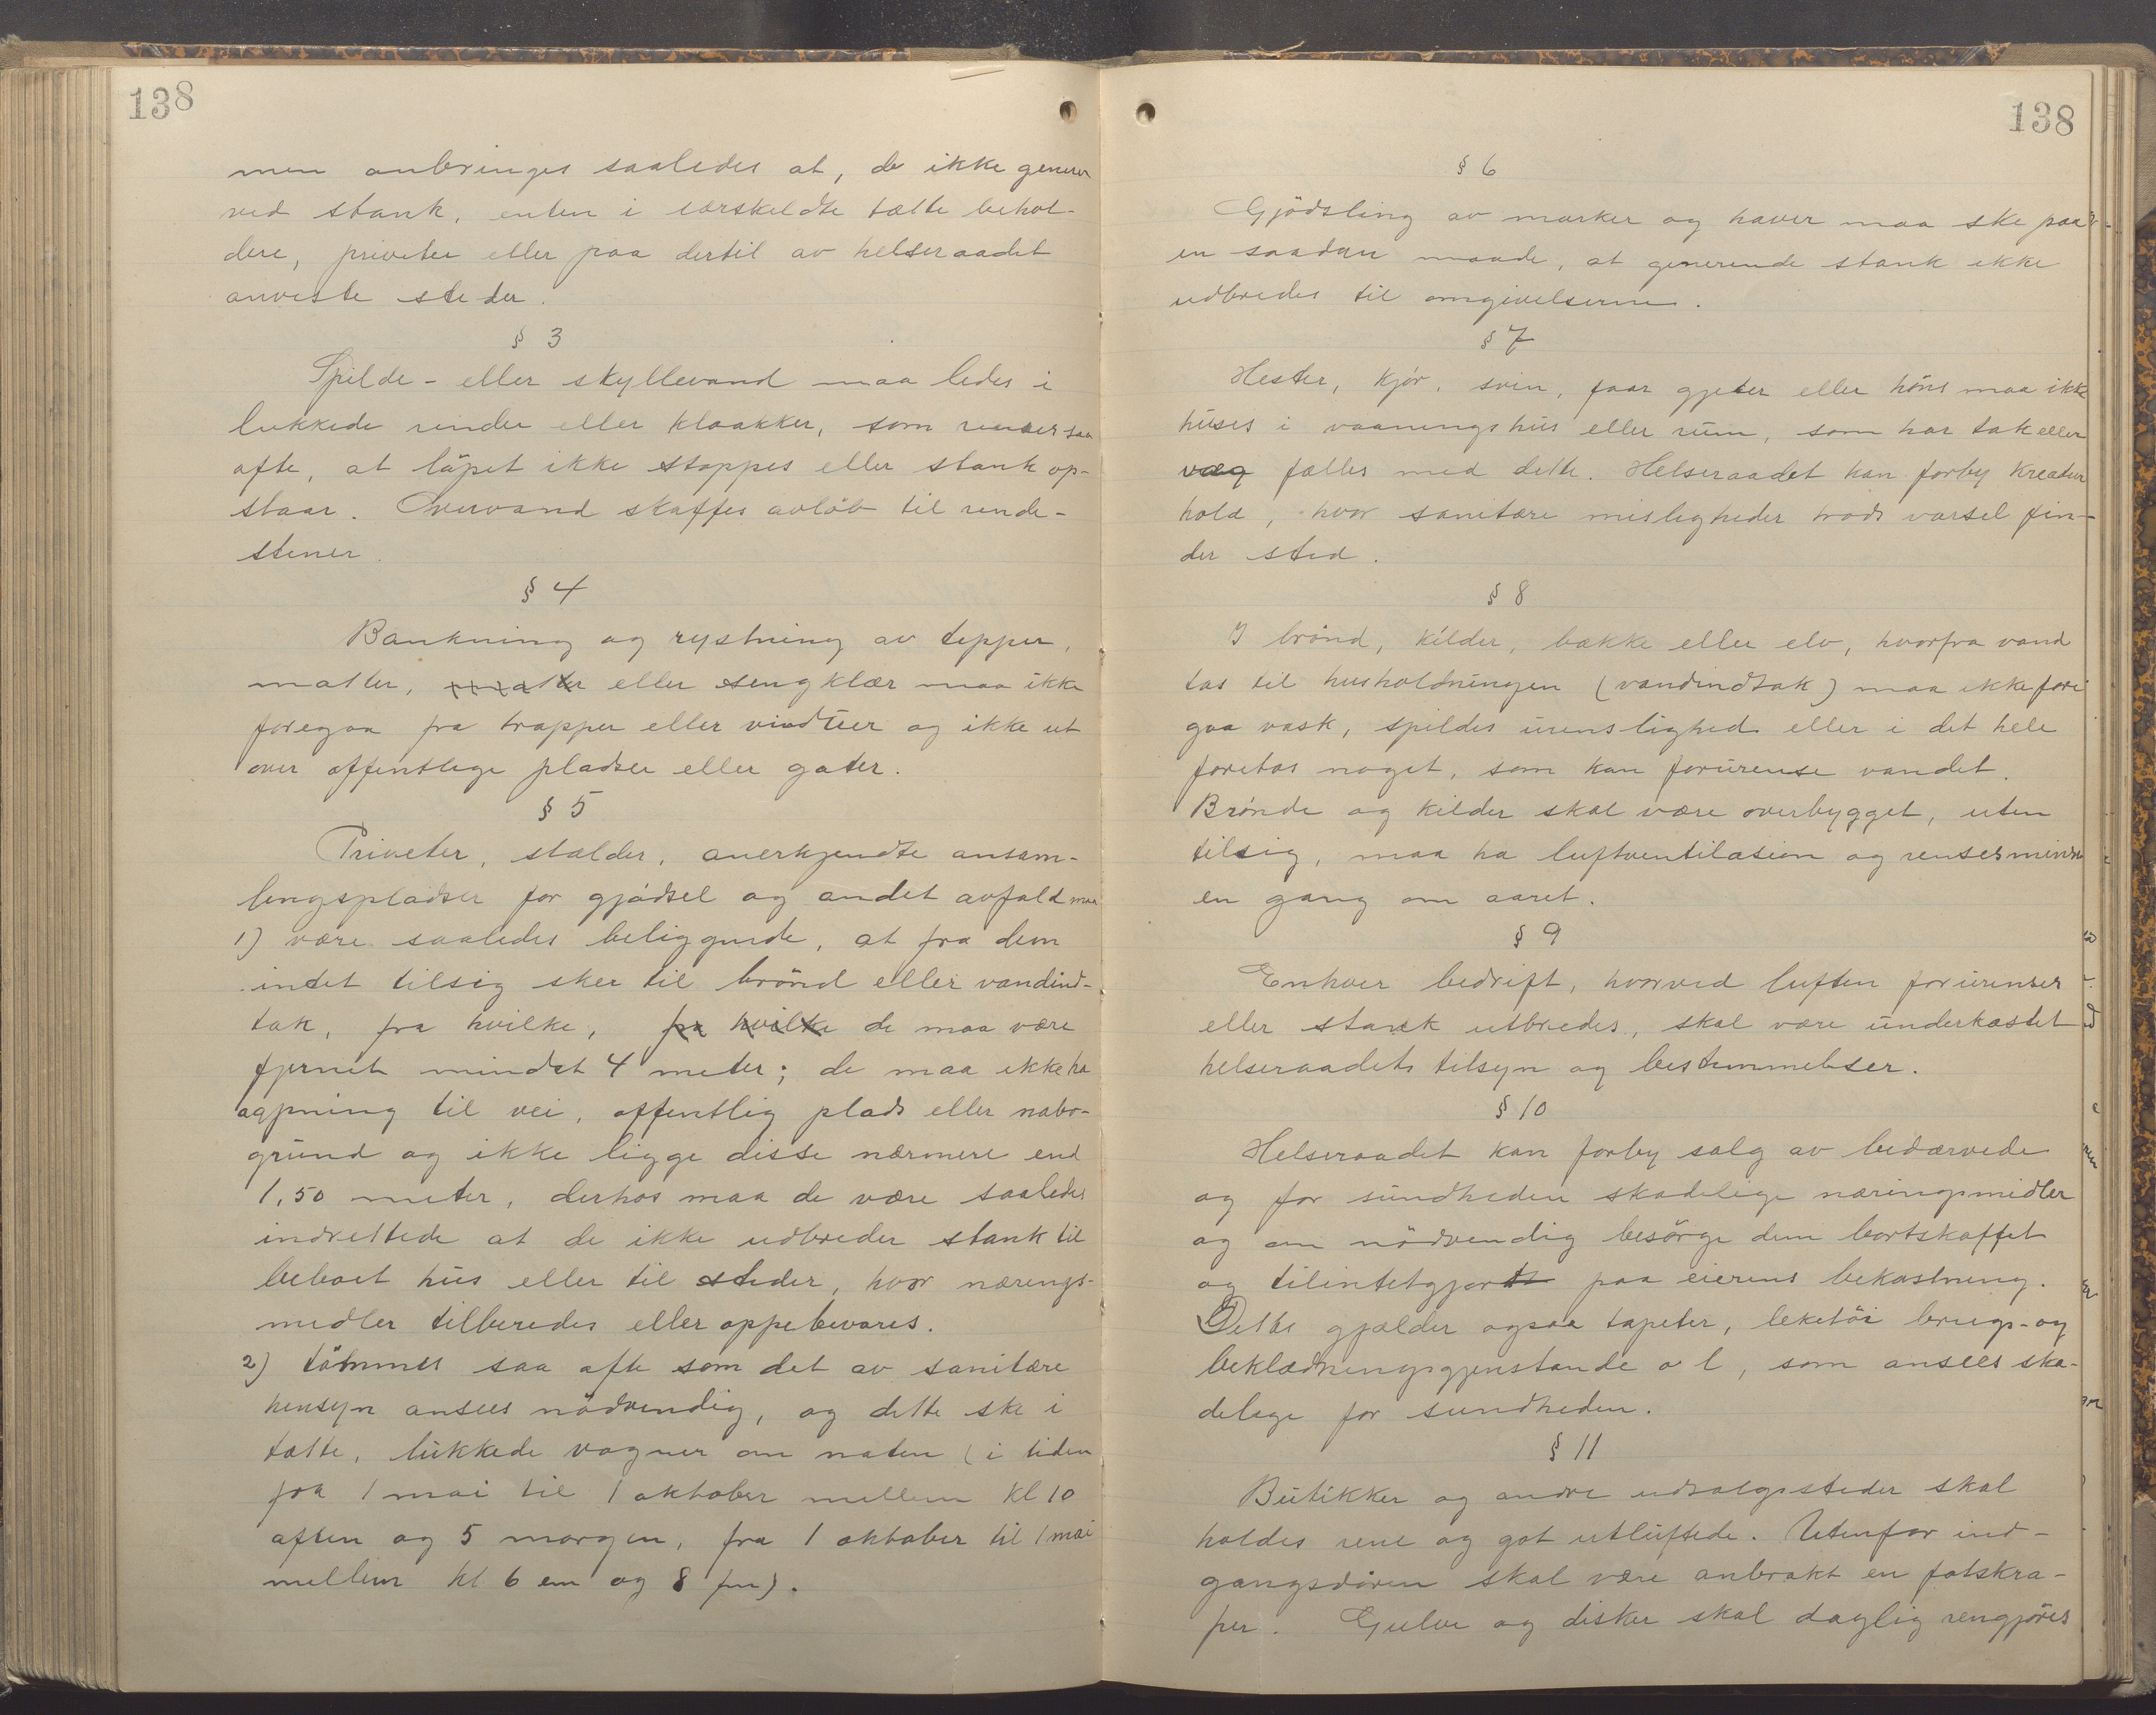 138
men anbringes saaledes at, de ikke generer
ved stank, enten i særskeldte tætte behol-
dere, priveter eller paa dertil av helseraadet
anviste steder.
§ 3
Spilde- eller skyllevand maa ledes i
lukkede render eller kloakker, som renses saa
ofte, at løpet ikke stoppes eller stank op-
staar. Overvand skaffes avløb til rende-
stener.
§ 4
Bankning og rystning av tepper,
matter, matter eller sengklær maa ikke
foregaa fra trapper eller vinduer og ikke ut
over offentlige pladser eller gater.
§ 5
Priveter, stalder, anerkjendte ansam-
lingspladser for gjødsel og andet avfald maa
1) være saaledes beliggende, at fra dem
intet tilsig sker til brønd eller vandind-
tak, fra hvilke, fra hvilke de maa være
fjernet mindst 4 meter; de maa ikke ha
aapning til vei, offentlig plads eller nabo-
grund og ikke ligge disse nærmere end
1,50 meter, derhos maa de være saaledes
indrettede at de ikke udbreder stank til
beboet hus eller til steder, hvor nærings-
midler tilberedes eller oppebevares.
2) tømmes saa ofte som det av sanitære
hensyn ansees nødvendig, og dette ske i
tætte, lukkede vogner om naten (i tiden
fra 1 mai til 1 oktober mellem kl 10
aften og 5 morgen, fra 1 oktober til 1 mai
mellem kl 6 em og 8 fm).
138
§ 6
Gjødsling av marker og haver maa ske paa
en saadan maade, at generende stank ikke
udbredes til omgivelserne.
§ 7
Hester, kjør, svin, faar gjeter eller høns maa ikke
huses i vaaningshus eller rum, som har tak eller
væg fælles med dette. Helseraadet kan forby kreatur
hold, hvor sanitære misligheder trods varsel fin-
der sted.
§ 8
I brønd, kilder, bække eller elv, hvorfra vand
tas til husholdningen (vandindtak) maa ikke fore
gaa vask, spildes urenslighed eller i det hele
foretas noget, som kan forurense vandet.
Brønde og kilder skal være overbygget, uten
tilsig, maa ha luftventilasion og renses mindst
en gang om aaret.
§ 9
Enhver bedrift, hvorved luften forurenses
eller stank utbredes, skal være underkastet
helseraadets tilsyn og bestemmelser.
§ 10
Helseraadet kan forby salg av bedærvede
og for sundheden skadelige næringsmidler
og om nødvendig besørge dem bortskaffet
og tilintetgjort paa eierens bekostning.
Dette gjælder ogsaa tapeter, leketøi brugs- og
beklædningsgjenstande o l, som ansees ska-
delige for sundheden.
§ 11
Butikker og andre udsalgssteder skal
holdes rene og got utluftede. Utenfor ind-
gangsdøren skal være anbrakt en fotskra-
per. Gulve og disker skal daglig rengjøres